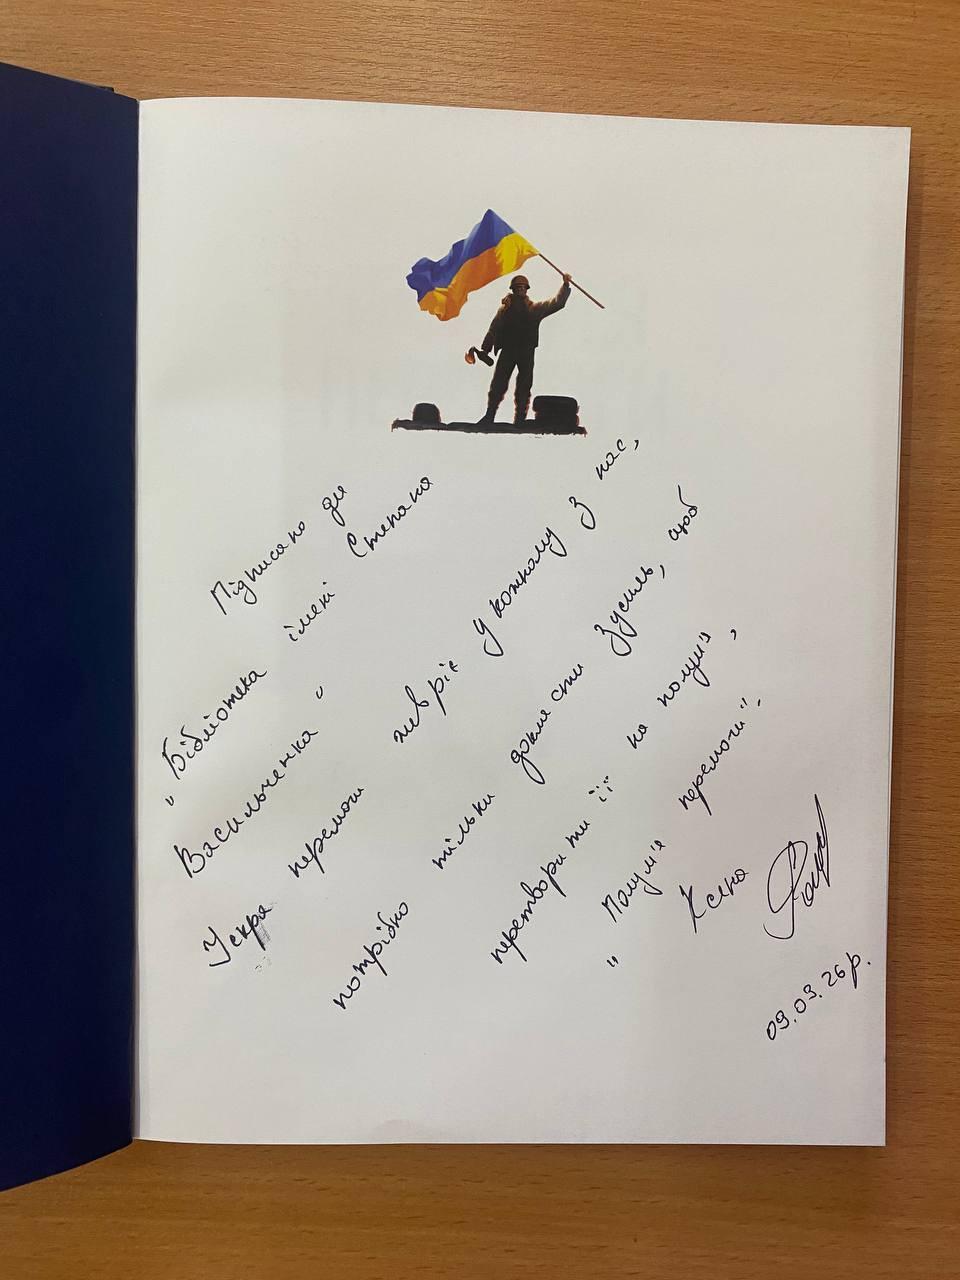 Підписано для
„Бібліотека імені Степана
Васильченка"
Іскра перемоги жевріє у кожному з нас,
потрібно тільки докласти зусиль, щоб
перетворити її на полум'я,
„Полум'я перемоги".
Ксена
09.03.26 р.